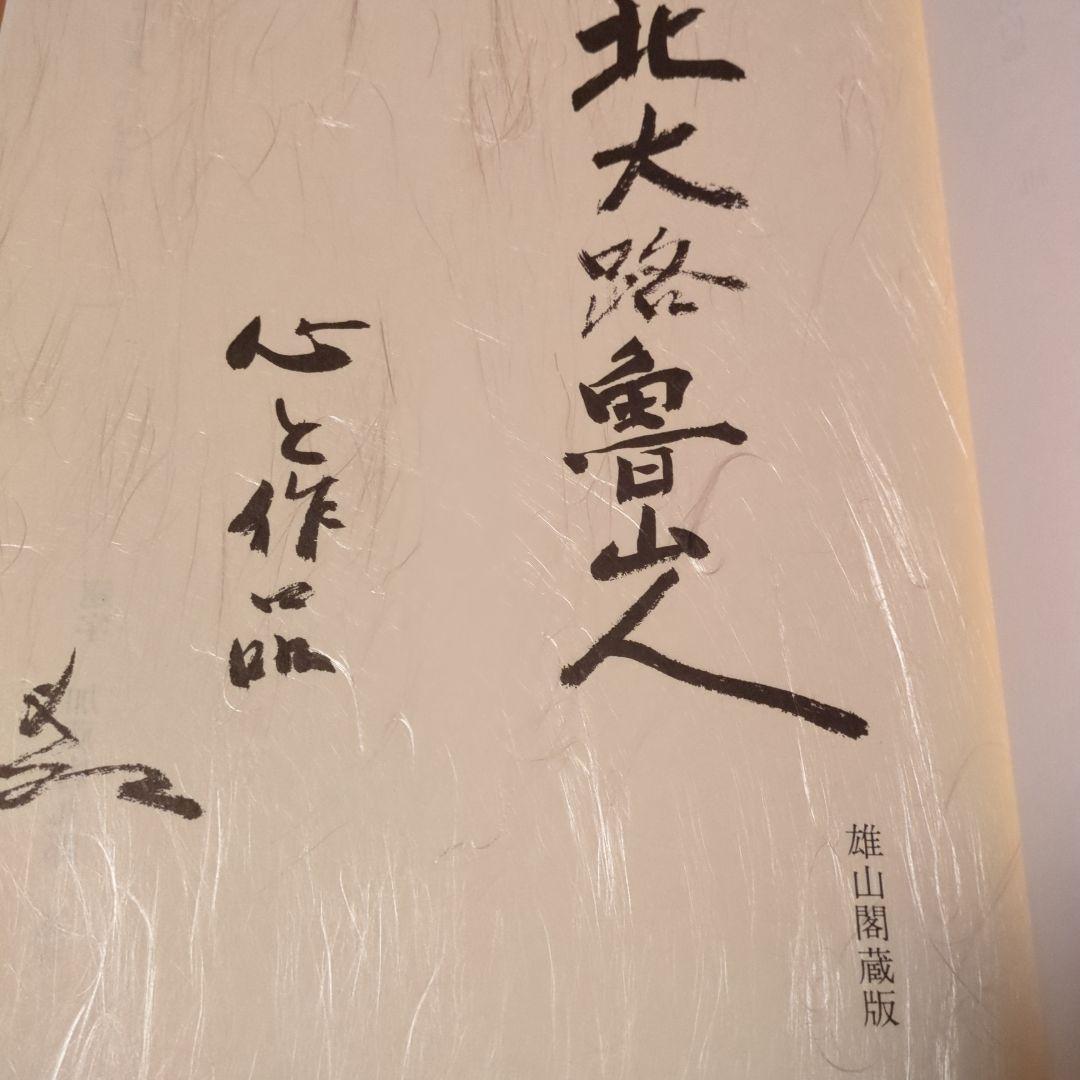 北大路魯山人
心と作品
雄山閣蔵版